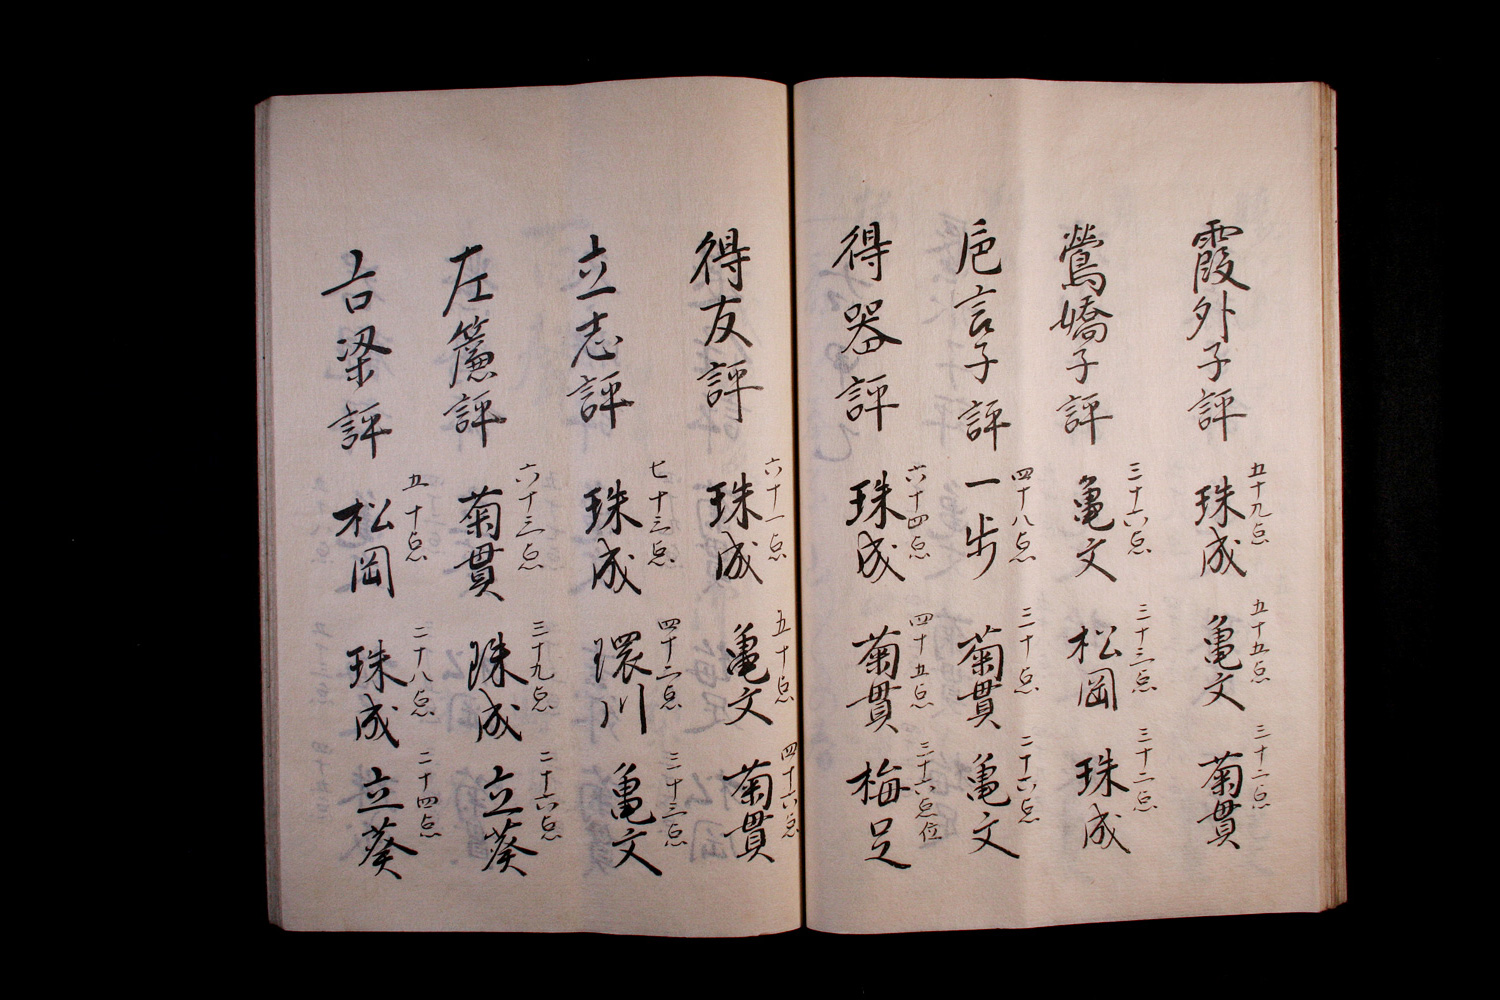 霞外子評 五十九点 珠成 五十五点 亀文 三十二点 菊貫
鶯嬌子評 三十六点 亀文 三十三点 松岡 三十二点 珠成
巵言子評 四十八点 一歩 三十点 菊貫 二十六点 亀文
得器評 六十四点 珠成 四十五点 菊貫 三十六点位 梅足
得友評 六十一点 珠成 五十点 亀文 四十六点 菊貫
立志評 七十三点 珠成 四十二点 環川 三十三点 亀文
左簾評 六十三点 菊貫 三十九点 珠成 二十六点 立葵
梁評 五十点 松岡 二十八点 珠成 二十四点 立葵